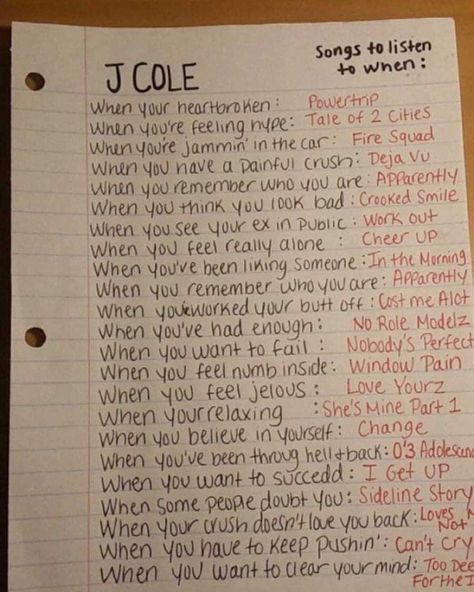 J COLE
Songs to listen
to when:
When your heartbroken: Powertrip
When you're feeling hype: Tale of 2 Cities
When you're jammin' in the car: Fire Squad
When you have a painful crush: Deja Vu
When you remember who you are: Apparently
When you think you look bad: Crooked Smile
When you see your ex in public: Work out
When you feel really alone: Cheer UP
When you've been liking someone: In the Morning
When you remember who you are: Apparently
When you've worked your butt off: Cost me Alot
When you've had enough: No Role Modelz
When you want to fail: Nobody's Perfect
When you feel numb inside: Window Pain
When you feel jelous: Love Yourz
When your relaxing: She's Mine Part 1
When you believe in yourself: Change
When you've been throug hell + back: 03' Adolescen
When you want to succedd: I Get UP
When some people doubt you: Sideline Story
When your crush doesn't love you back: Loves Me
Not
When you have to keep pushin': Can't Cry
When you want to clear your mind: Too Dee
For the I